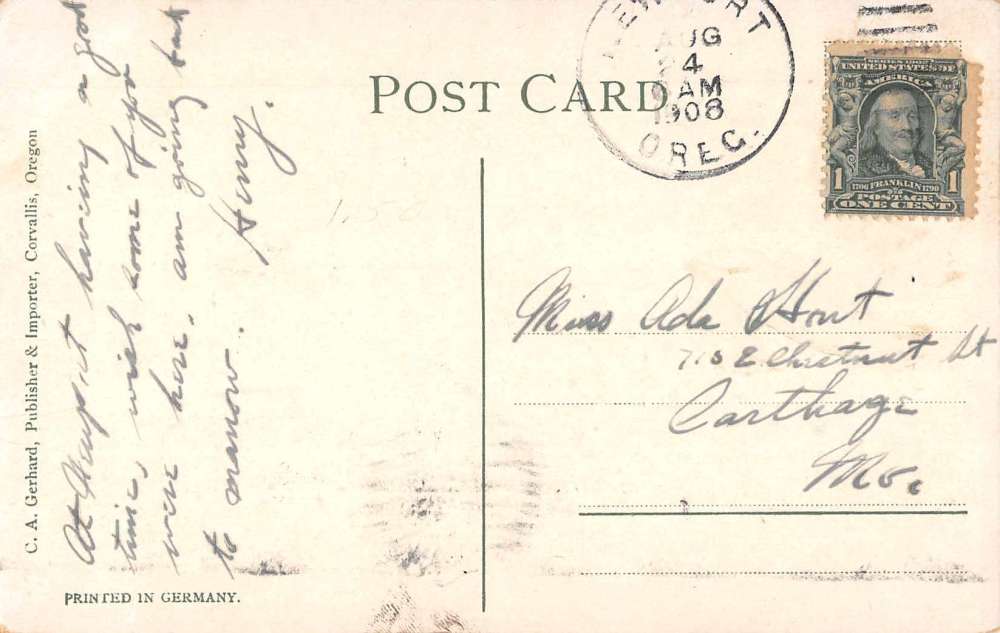 POST CARD.
NEWPORT
AUG
24
9 AM
1908
OREG.
SERIES 1902
UNITED STATES OF
AMERICA
1 1706 FRANKLIN 1790 1
POSTAGE
ONE CENT
C. A. Gerhard, Publisher & Importer, Corvallis, Oregon
At Newport having a god
time, wish some of you
were here. am going back
to manow.
Henry.
Miss Ada Hout
713 E Chestnut St
Carthage
Mo.
PRINTED IN GERMANY.